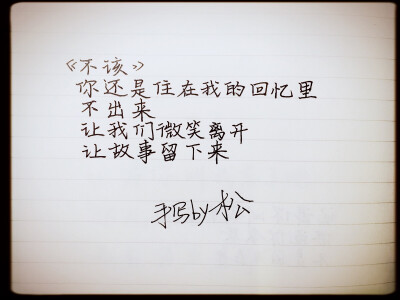 《不该》
你还是住在我的回忆里
不出来
让我们微笑离开
让故事留下来
手写by松